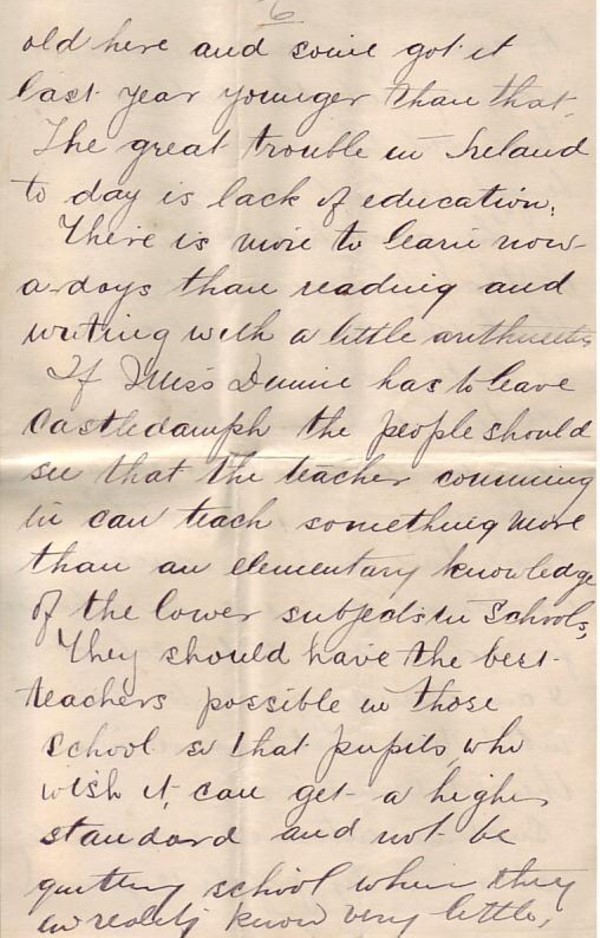 6
old here and some got it
last year younger than that.
The great trouble in Ireland
to day is lack of education.
There is more to learn now-
a-days than reading and
writing with a little arithmetic
If Miss Dunne has to leave
Castledamph the people should
see that the teacher comming
in can teach something more
than an elementary knowledge
of the lower subjects in Schools,
They should have the best
teachers possible in those
school so that pupils who
wish it, can get a higher
standard and not be
quitting school when they
in reality know very little,